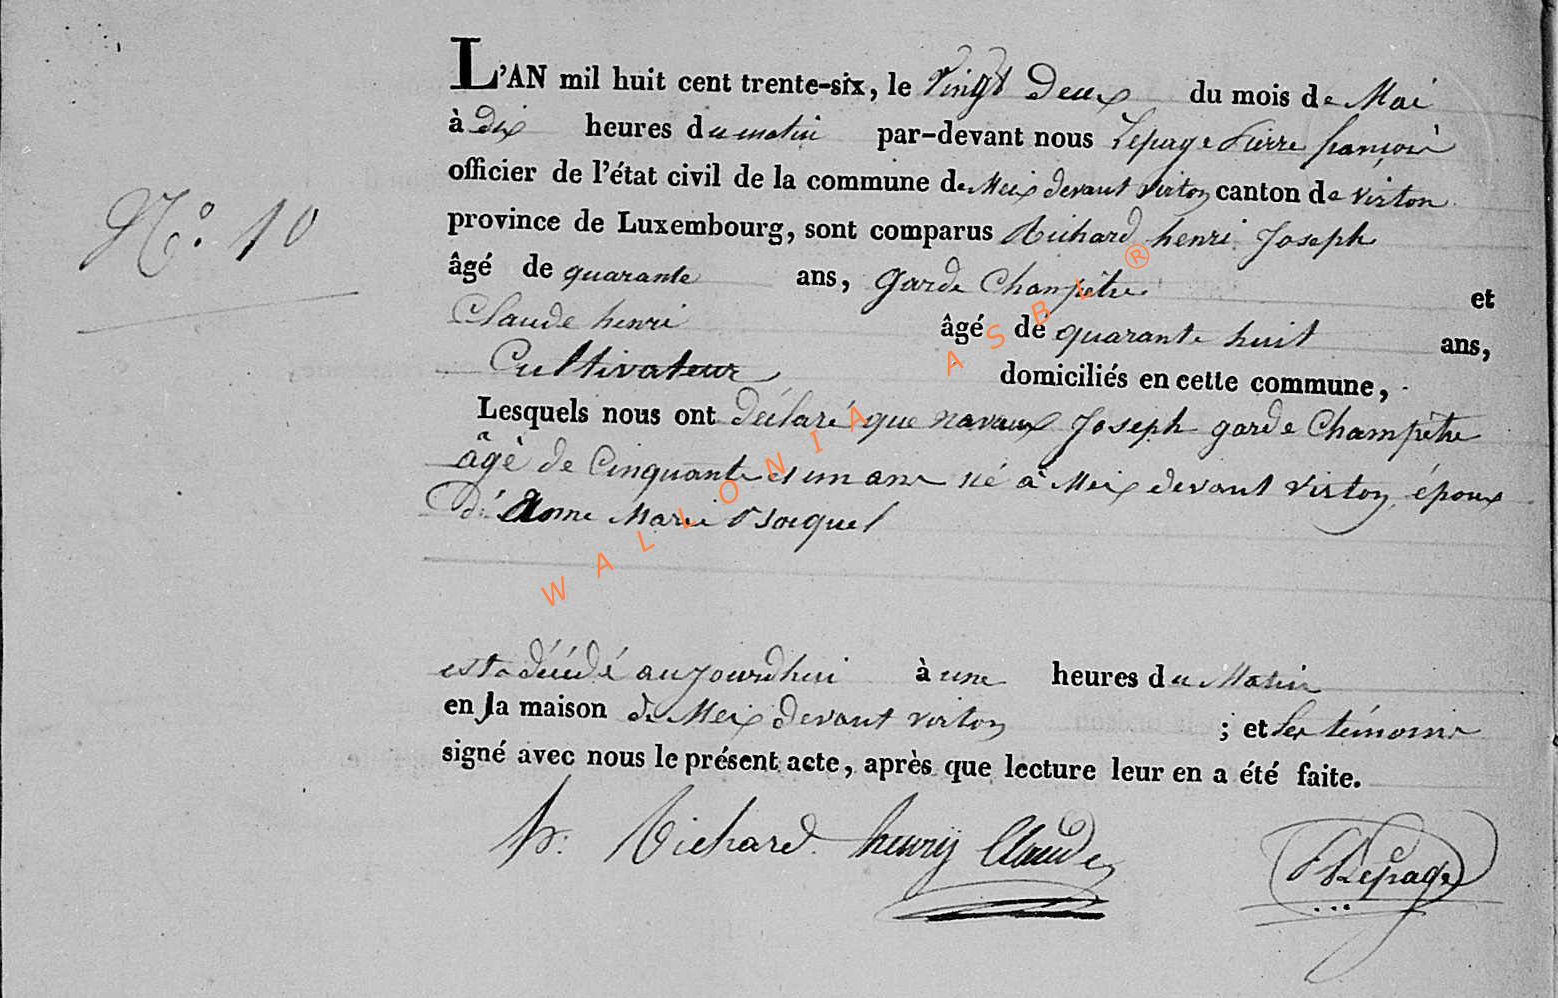 L'AN mil huit cent trente-six, le Vingt Deux du mois de Mai
à dix heures du matin par-devant nous Lepage Pierre françois
officier de l'état civil de la commune de Meix devant virton canton de virton
province de Luxembourg, sont comparus Richard henri Joseph
N.º 10
âgé de quarante ans, garde Champêtre et
Claude henri âgé de quarante huit ans,
Cultivateur domiciliés en cette commune,
Lesquels nous ont déclaré que navaux Joseph garde Champêtre
âgè de Cinquante et un ans né à Meix devant virton, époux
de Anne Marie
est décédé aujourdhui à une heures du Matin
en la maison de Meix devant virton ; et les témoins
signé avec nous le présent acte, après que lecture leur en a été faite.
h. Richard henry Claude Lepage
WALLONIA ASBL ®